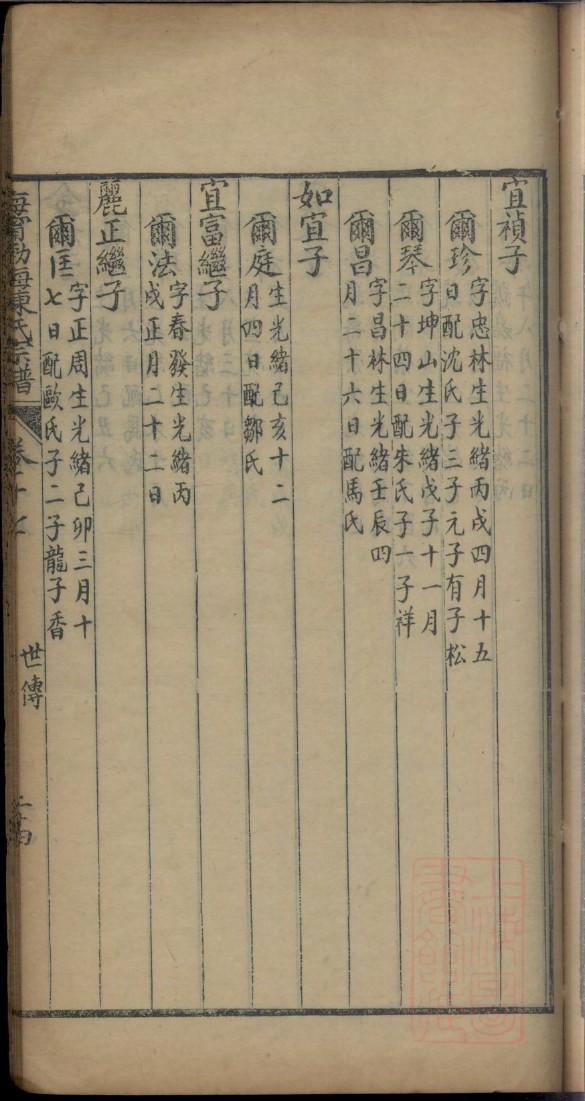 宜禎子
爾珍
字忠林生光緒丙戌四月十五
日配沈氏子三子元子有子松
爾琴
字坤山生光緒戊子十一月
二十四日配朱氏子一子祥
爾昌
字昌林生光緒壬辰四
月二十六日配馬氏
如宜子
爾庭
生光緒己亥十二
月四日配鄒氏
宜富繼子
爾法
字春發生光緒丙
戌正月二十二日
麗正繼子
爾匡
字正周生光緒己卯三月十
七日配歐氏子二子龍子香
海甯渤海陳氏宗譜
卷十七
世傳